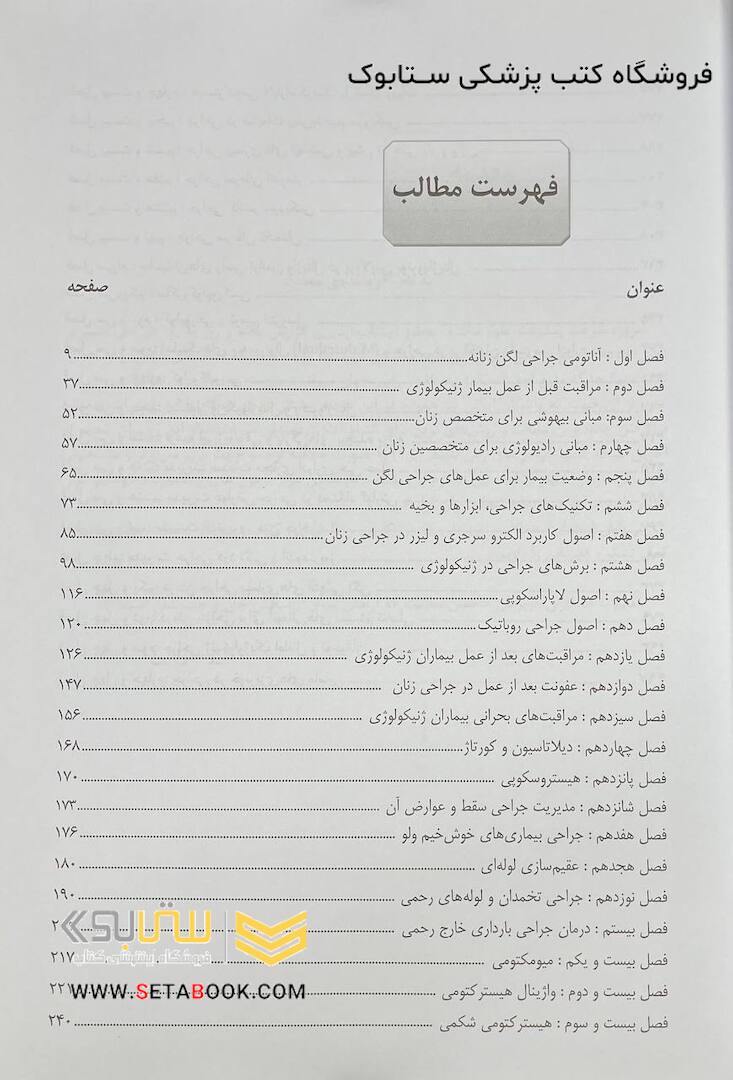 فروشگاه کتب پزشکی ستابوک
فهرست مطالب
عنوان صفحه
فصل اول : آناتومی جراحی لگن زنانه ۹
فصل دوم : مراقبت قبل از عمل بیمار ژنیکولوژی ۳۷
فصل سوم: مبانی بیهوشی برای متخصص زنان ۵۲
فصل چهارم : مبانی رادیولوژی برای متخصصین زنان ۵۷
فصل پنجم : وضعیت بیمار برای عمل‌های جراحی لگن ۶۵
فصل ششم : تکنیک‌های جراحی، ابزارها و بخیه ۷۳
فصل هفتم : اصول کاربرد الکترو سرجری و لیزر در جراحی زنان ۸۵
فصل هشتم : برش‌های جراحی در ژنیکولوژی ۹۸
فصل نهم : اصول لاپاراسکوپی ۱۱۶
فصل دهم : اصول جراحی روباتیک ۱۲۰
فصل یازدهم : مراقبت‌های بعد از عمل بیماران ژنیکولوژی ۱۲۶
فصل دوازدهم : عفونت بعد از عمل در جراحی زنان ۱۴۷
فصل سیزدهم : مراقبت‌های بحرانی بیماران ژنیکولوژی ۱۵۶
فصل چهاردهم : دیلاتاسیون و کورتاژ ۱۶۸
فصل پانزدهم : هیستروسکوپی ۱۷۰
فصل شانزدهم : مدیریت جراحی سقط و عوارض آن ۱۷۳
فصل هفدهم : جراحی بیماری‌های خوش‌خیم ولو ۱۷۶
فصل هجدهم : عقیم‌سازی لوله‌ای ۱۸۰
فصل نوزدهم : جراحی تخمدان و لوله‌های رحمی ۱۹۰
فصل بیستم : درمان جراحی بارداری خارج رحمی
ستابوک
فروشگاه اینترنتی کتاب
فصل بیست و یکم : میومکتومی ۲۱۷
فصل بیست و دوم : واژینال هیسترکتومی ۲۲۱
WWW.SETABOOK.COM
فصل بیست و سوم : هیسترکتومی شکمی ۲۴۰